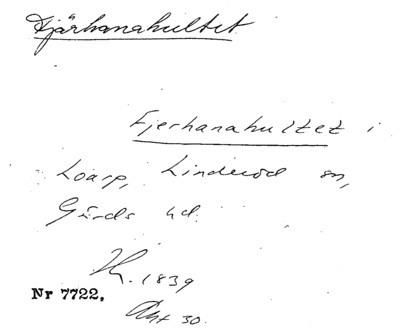 Fjärhanakultet
Fjerhanakultet i
Loarp, Linderöd sn,
Gärds hd.
H. 1839
Nr 7722.
Akt 30.